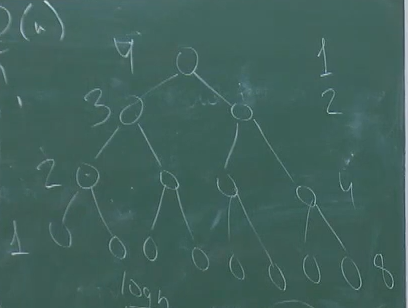 O(n)
4 1
3 2
2 4
1 8
log n